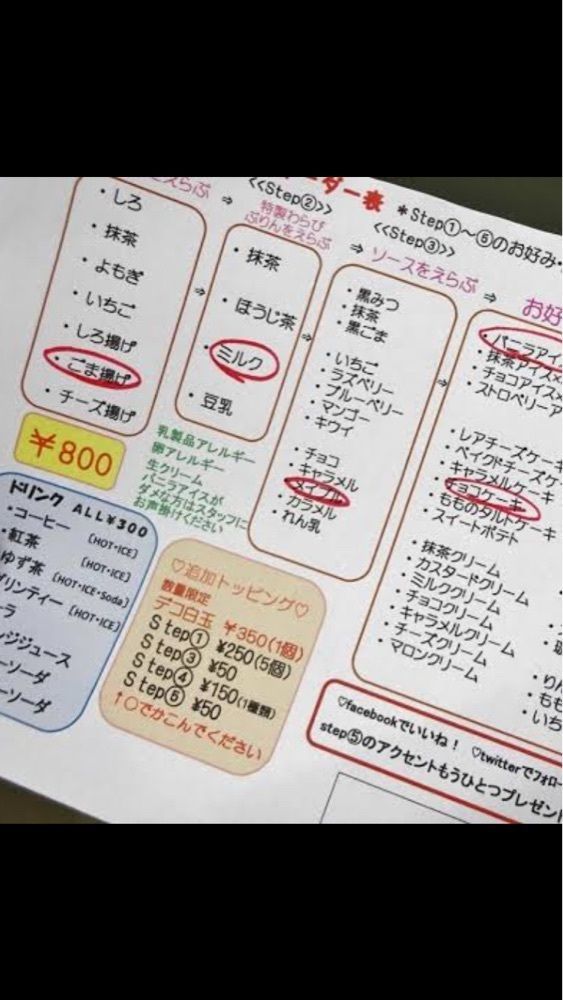 をえらぶ
・しろ
・抹茶
・よもぎ
・いちご
・しろ揚げ
・ごま揚げ
・チーズ揚げ
⇒
<<Step②>>
特製わらび
ぷりんをえらぶ
・抹茶
・ほうじ茶
・ミルク
・豆乳
⇒
ーダー表
*Step①〜⑤のお好み
<<Step③>>
⇒ ソースをえらぶ ⇒
・黒みつ
・抹茶
・黒ごま
・いちご
・ラズベリー
・ブルーベリー
・マンゴー
・キウイ
・チョコ
・キャラメル
・メイプル
・カラメル
・れん乳
お好
・バニラアイ
・抹茶アイス
・チョコアイス
・ストロベリーア
・レアチーズケーキ
・ベイクドチーズケ
・キャラメルケーキ
・チョコケーキ
・もものタルトケーキ
・スイートポテト
・抹茶クリーム
・カスタードクリーム
・ミルククリーム
・チョコクリーム
・キャラメルクリーム
・チーズクリーム
・マロンクリーム
・りん
・もも
・いち
￥800
乳製品アレルギー
卵アレルギー
生クリーム
バニラアイスが
ダメな方はスタッフに
お声掛けください
ドリンク ALL¥300
・コーヒー [HOT・ICE]
・紅茶 [HOT・ICE]
ゆず茶 [HOT・ICE・Soda]
グリンティー [HOT・ICE]
ーラ
ンジジュース
ーソーダ
ーソーダ
♡追加トッピング♡
数量限定
デコ白玉 ¥350(1個)
Step① ¥250(5個)
Step③ ¥50
Step④ ¥150(1種類)
Step⑤ ¥50
↑○でかこんでください
♡facebookでいいね！ ♡twitterでフォロー
step⑤のアクセントもうひとつプレゼント